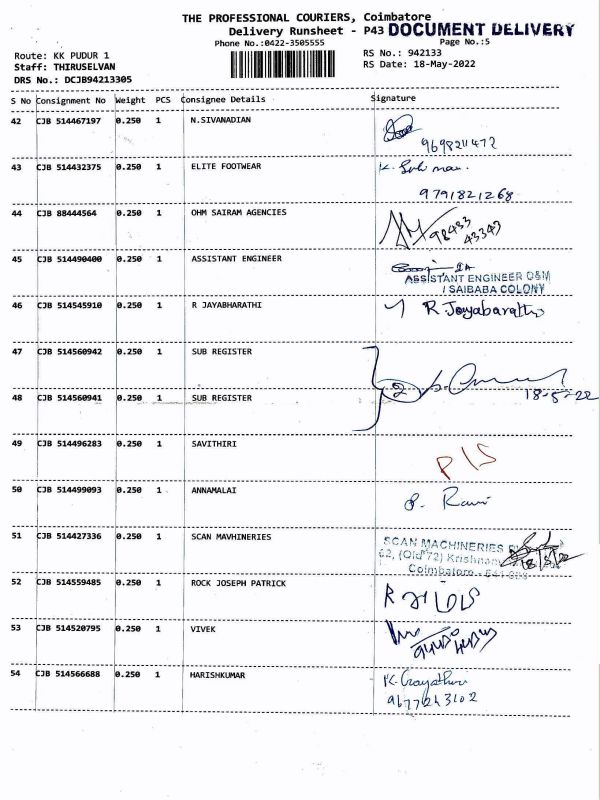 THE PROFESSIONAL COURIERS, Coimbatore
Delivery Runsheet - P43 DOCUMENT DELIVERY
Phone No.:0422-3505555 Page No.:5
Route: KK PUDUR 1 RS No.: 942133
Staff: THIRUSELVAN RS Date: 18-May-2022
DRS No.: DCJB94213305
S No Consignment No Weight PCS Consignee Details Signature
42 CJB 514467197 0.250 1 N.SIVANADIAN
43 CJB 514432375 0.250 1 ELITE FOOTWEAR
9791821268
44 CJB 88444564 0.250 1 OHM SAIRAM AGENCIES
98433
43343
45 CJB 514490400 0.250 1 ASSISTANT ENGINEER
ASSISTANT ENGINEER O&M
/ SAIBABA COLONY
46 CJB 514545910 0.250 1 R JAYABHARATHI R. Jayabarathi
47 CJB 514560942 0.250 1 SUB REGISTER
2
18-5-22
48 CJB 514560941 0.250 1 SUB REGISTER
49 CJB 514496283 0.250 1 SAVITHIRI
P/S
50 CJB 514499093 0.250 1 ANNAMALAI
P. Ravi
51 CJB 514427336 0.250 1 SCAN MAVHINERIES
SCAN MACHINERIES
62, (Old 72) Krishnam
Coimbatore - 641
52 CJB 514559485 0.250 1 ROCK JOSEPH PATRICK
53 CJB 514520795 0.250 1 VIVEK
54 CJB 514566688 0.250 1 HARISHKUMAR
K. Gayathri
9677243102